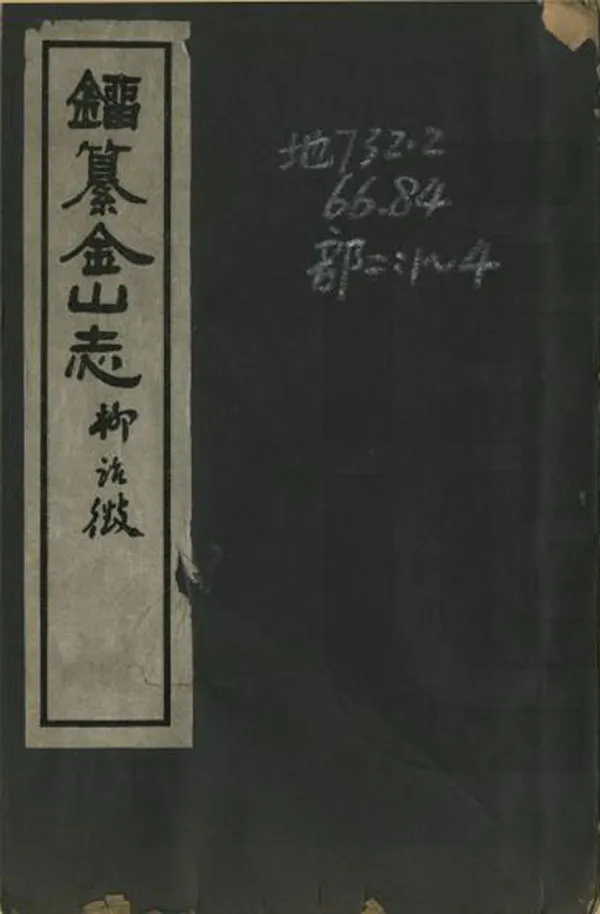 鎦纂金山志
柳詒徵
地732.2
66.84
部二:1~4